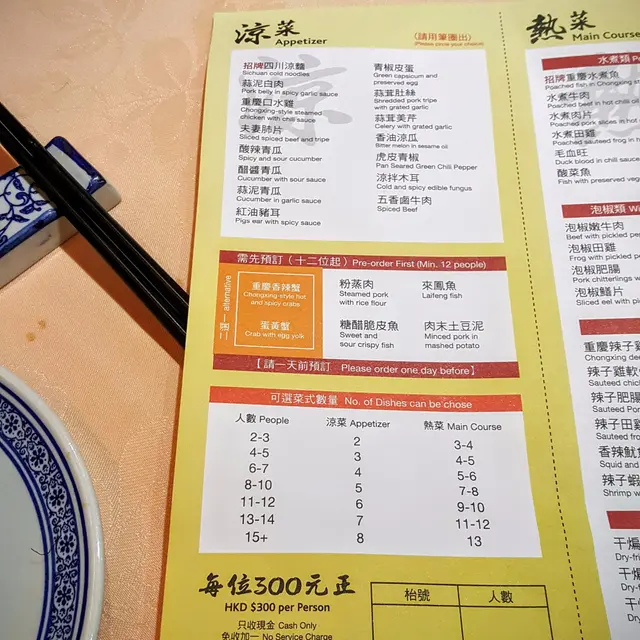 涼菜 Appetizer
(請用筆圈出)
(Please circle your choice)
招牌四川涼麵
Sichuan cold noodles
蒜泥白肉
Pork belly in spicy garlic sauce
重慶口水雞
Chongxing-style steamed
chicken with chili sauce
夫妻肺片
Spicy sliced beef and tripe
酸辣青瓜
Spicy and sour cucumber
醋醬青瓜
Cucumber with sour sauce
蒜泥青瓜
Cucumber in garlic sauce
紅油豬耳
Pigs ear with spicy sauce
青椒皮蛋
Green capsicum and
preserved egg
蒜茸肚絲
Shredded pork tripe
with grated garlic
蒜茸美芹
Celery with grated garlic
香油涼瓜
Bitter melon in sesame oil
虎皮青椒
Pan Seared Green Chili Pepper
涼拌木耳
Cold and spicy edible fungus
五香鹵牛肉
Spiced Beef
需先預訂(十二位起) Pre-order First (Min. 12 people)
二選一 alternative
重慶香辣蟹
Chongxing-style hot
and spicy crabs
蛋黃蟹
Crab with egg yolk
粉蒸肉
Steamed pork
with rice flour
來鳳魚
Laifeng fish
糖醋脆皮魚
Sweet and
sour crispy fish
肉末土豆泥
Minced pork in
mashed potato
【請一天前預訂 Please order one day before】
可選菜式數量 No. of Dishes can be chose
人數 People 涼菜 Appetizer 熱菜 Main Course
2-3 2 3-4
4-5 3 4-5
6-7 4 5-6
8-10 5 7-8
11-12 6 9-10
13-14 7 11-12
15+ 8 13
每位300元正
HKD $300 per Person
只收現金 Cash Only
免收加一 No Service Charge
枱號 人數
熱菜 Main Course
水煮類
招牌重慶水煮魚
Poached fish in Chongxing
水煮牛肉
Poached beef in hot chili
水煮肉片
Poached pork slices in hot
水煮田雞
Poached sautéed frog in
毛血旺
Duck blood in chili sauce
酸菜魚
Fish with preserved
泡椒類
泡椒嫩牛肉
Beef with pickled
泡椒田雞
Frog with pickled
泡椒肥腸
Pork chitterlings
泡椒鱔片
Sliced eel with
重慶辣子
Chongxing
辣子雞軟
Sauteed chicken
辣子肥腸
Sauteed Pork
辣子田雞
Sauteed frog
香辣魷
Squid and
辣子蝦
Shrimp
干煸
Dry-fried
干煸
Dry-